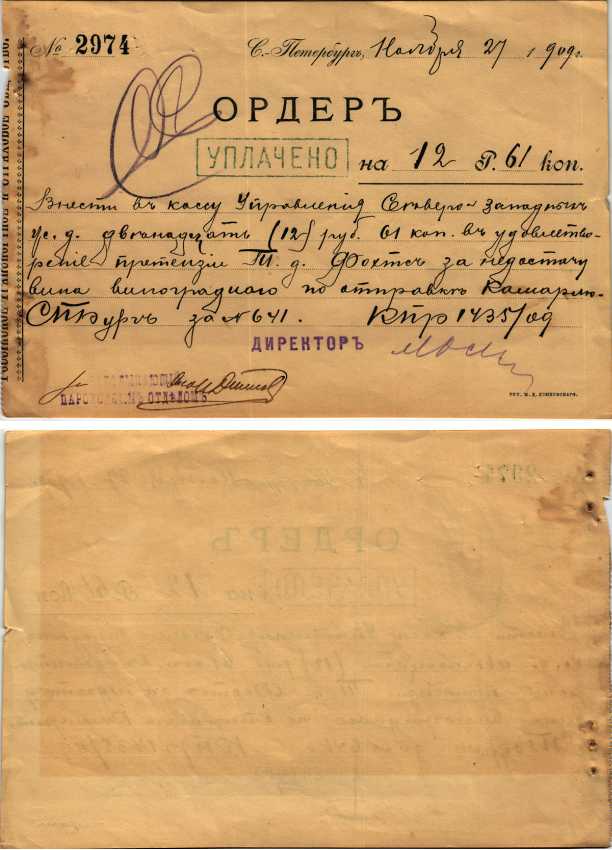 № 2974 С.-Петербургъ, Ноября 27 1909 г.
ОРДЕРЪ
УПЛАЧЕНО
на 12 Р. 61 коп.
Внести въ кассу Управленія Сѣверо-Западныхъ
ж. д. двѣнадцать (12) руб. 61 коп. въ удовлетво-
реніе претензіи Т. д. Фохтсъ за недостачу
вина винограднаго по отправкѣ
СПБургъ за № 641. КПр 1435/09
ДИРЕКТОРЪ
ПАРОХОДНЫМЪ ОТДѢЛОМЪ
РОССІЙСКОЕ ТРАНСПОРТНОЕ И СТРАХОВОЕ ОБЩЕСТВО.